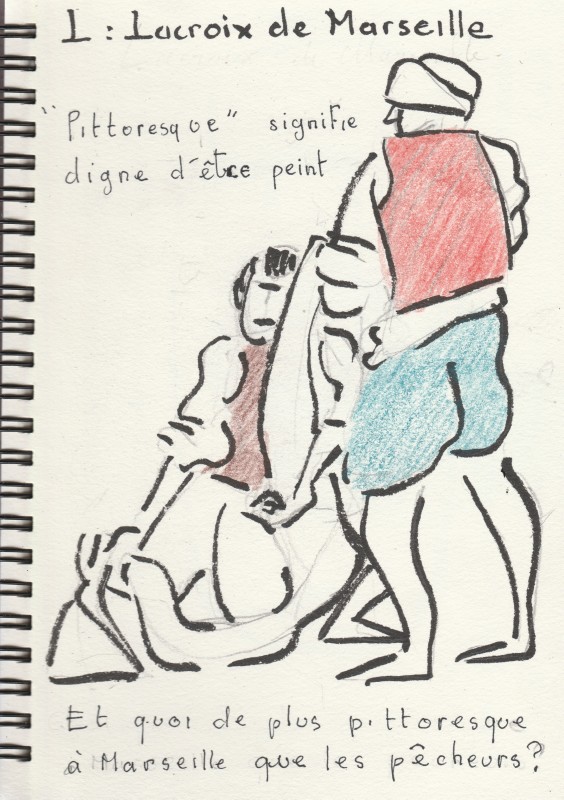 L : Lacroix de Marseille
"Pittoresque" signifie
digne d'être peint
Et quoi de plus pittoresque
à Marseille que les pêcheurs?